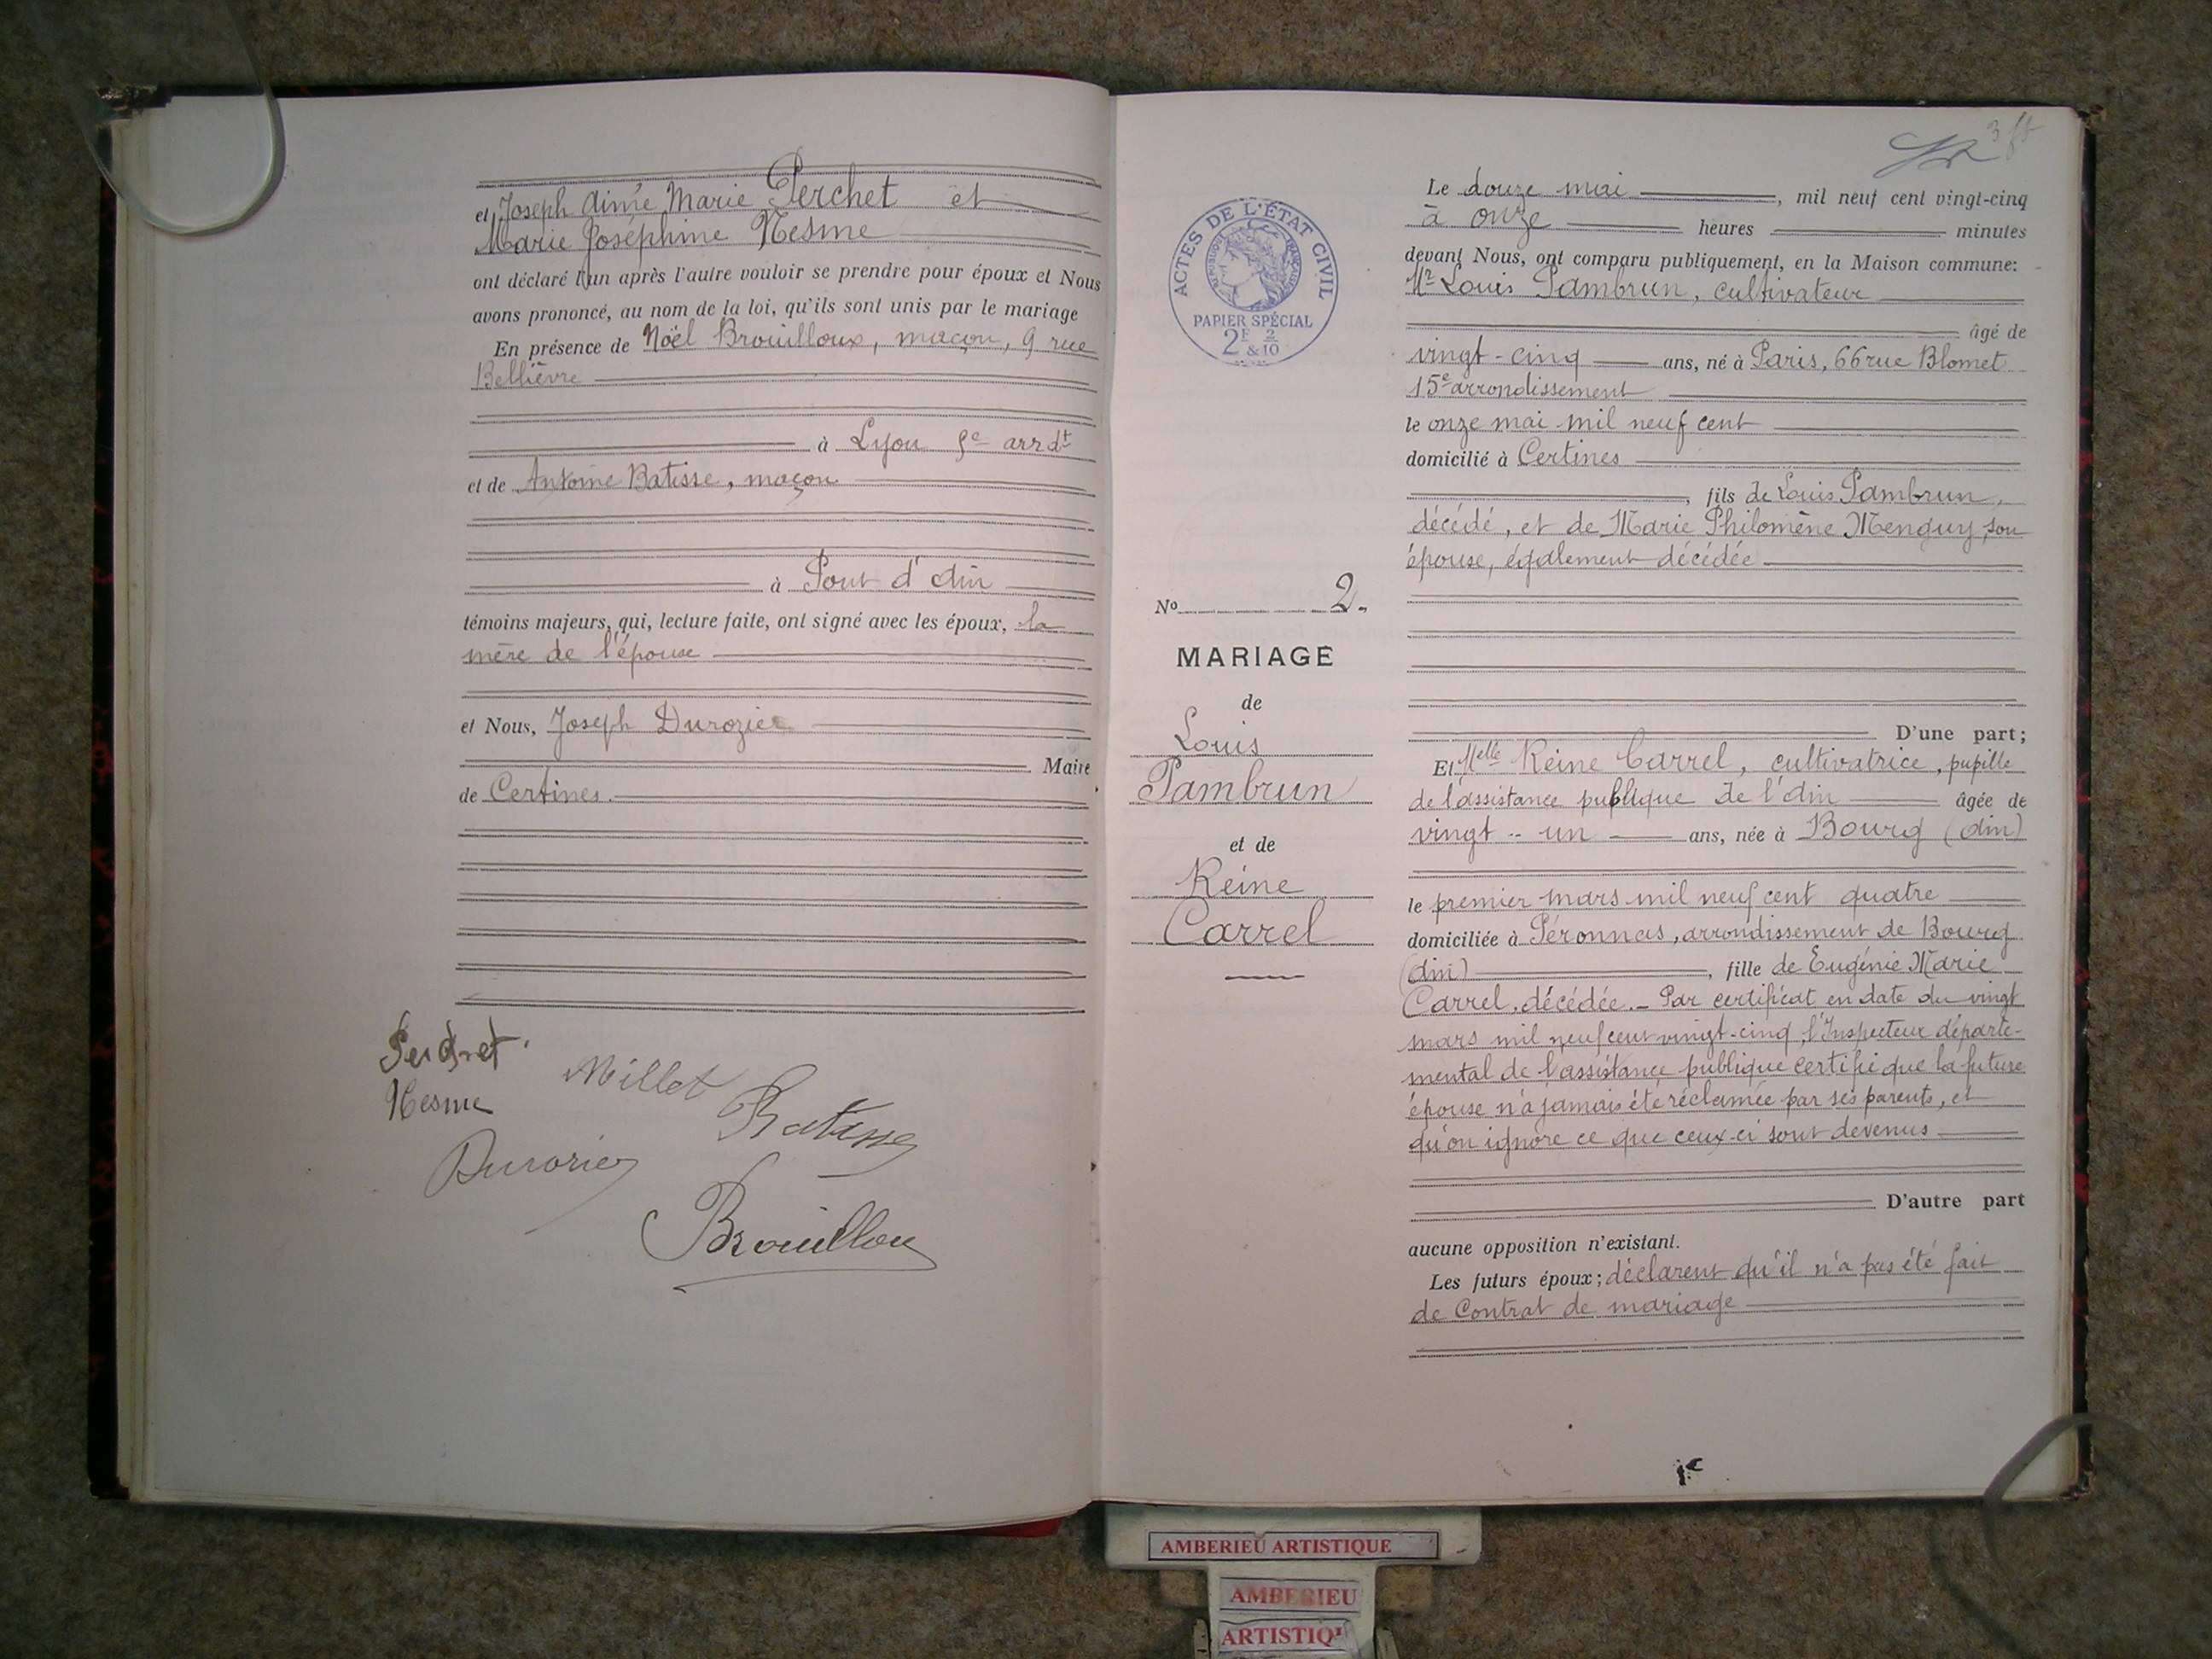 et Joseph Aimé Marie Perchet et
Marie Joséphine Nesme
ont déclaré l'un après l'autre vouloir se prendre pour époux et Nous
avons prononcé, au nom de la loi, qu'ils sont unis par le mariage
En présence de Noël Brouilloux, maçon, 9 rue
Bellièvre
à Lyon 5e arrdt
et de Antoine Batisse, maçon
à Pont d'Ain
témoins majeurs, qui, lecture faite, ont signé avec les époux, la
mère de l'épouse
et Nous, Joseph Durozier
Maire
de Certines.
Perchet
Millet
Nesme
Batisse
Durozier
Brouilloux
ACTES DE L'ÉTAT CIVIL
RÉPUBLIQUE FRANÇAISE
PAPIER SPÉCIAL
2F & 2/10
No 2.
MARIAGE
de
Louis
Pambrun
et de
Reine
Carrel
3
Le douze mai, mil neuf cent vingt-cinq
à onze heures minutes
devant Nous, ont comparu publiquement, en la Maison commune:
Mr Louis Pambrun, cultivateur
âgé de
vingt-cinq ans, né à Paris, 66 rue Blomet
15e arrondissement
le onze mai mil neuf cent
domicilié à Certines
, fils de Louis Pambrun,
décédé, et de Marie Philomène Menguy, son
épouse, également décédée
D'une part;
Et Melle Reine Carrel, cultivatrice, pupille
de l'assistance publique de l'Ain âgée de
vingt-un ans, née à Bourg (Ain)
le premier mars mil neuf cent quatre
domiciliée à Péronnas, arrondissement de Bourg
(Ain), fille de Eugénie Marie
Carrel, décédée. - Par certificat en date du vingt
mars mil neuf cent vingt-cinq, l'Inspecteur départe-
mental de l'assistance publique certifie que la future
épouse n'a jamais été réclamée par ses parents, et
qu'on ignore ce que ceux-ci sont devenus
D'autre part
aucune opposition n'existant.
Les futurs époux; déclarent qu'il n'a pas été fait
de Contrat de mariage
AMBERIEU ARTISTIQUE
AMBERIEU
ARTISTIQU